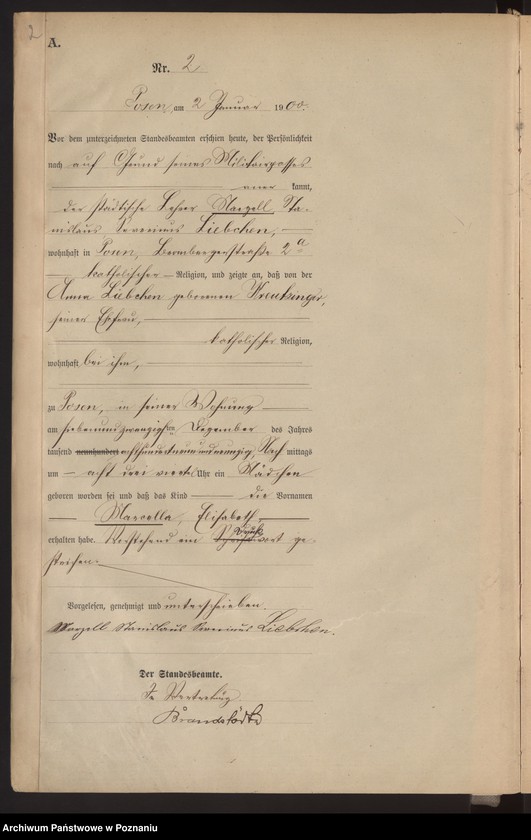 2
A.
Nr. 2
Posen, am 2 Januar 1900.
Vor dem unterzeichneten Standesbeamten erschien heute, der Persönlichkeit
nach auf Grund seines Militairpasses
aner kannt,
der städtische Lehrer Marzell Sta-
nislaus Severinus Liebchen,
wohnhaft in Posen, 2a
katholischer Religion, und zeigte an, daß von der
Anna Liebchen geborenen Kreutzinger,
seiner Ehefrau,
katholischer Religion,
wohnhaft bei ihm,
zu Posen, in seiner Wohnung
am siebenundzwanzigsten Dezember des Jahres
tausend neunhundert achthundertneunundneunzig, Nach mittags
um acht drei viertel Uhr ein Mädchen
geboren worden sei und daß das Kind die Vornamen
Marcella, Elisabeth
erhalten habe. Vorstehend ein Druckwort ge-
strichen.
Vorgelesen, genehmigt und unterschrieben
Marzell Stanislaus Severinus Liebchen.
Der Standesbeamte.
In Vertretung
Archiwum Państwowe w Poznaniu